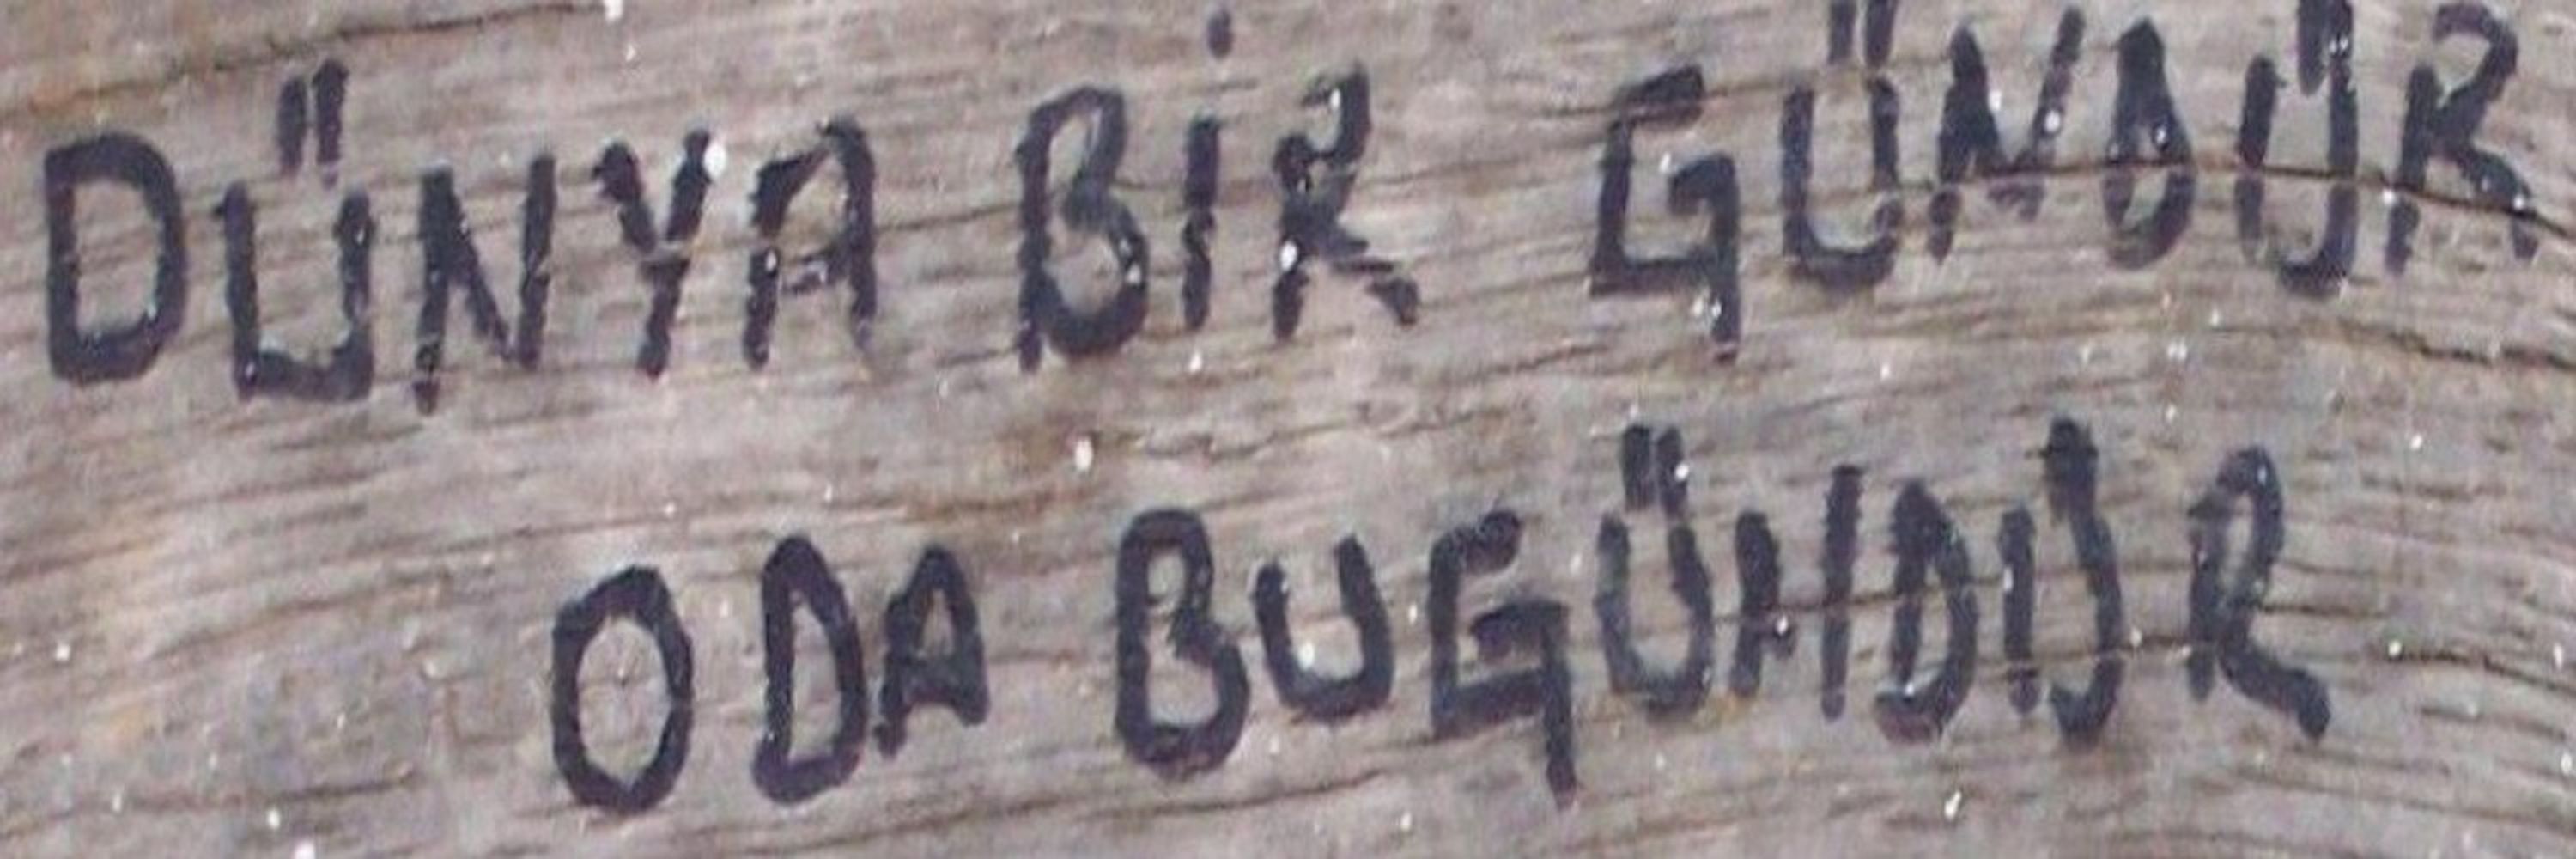 DÜNYA BİR GÜNDÜR
ODA BUGÜNDÜR